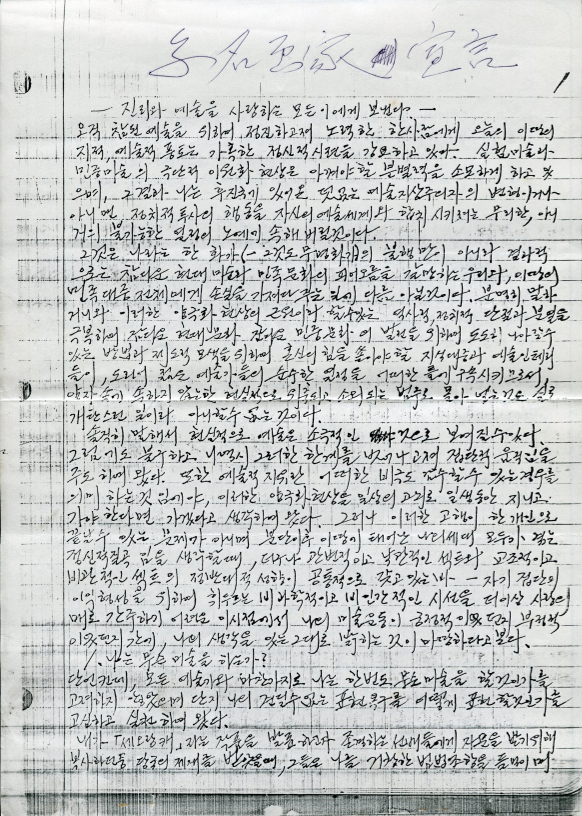 無名画家 宣言
1
— 진리와 예술을 사랑하는 모든이에게 보낸다 —
오직 참된 예술을 위하여 정진하고저 노력한 한사람에게 오늘의 이땅의
지적, 예술적 풍토는 가혹한 정신적시련을 강요하고 있다. 실험미술과
민중미술의 극단적 이원화 현상은 아껴야할 분별력을 소모하게 하고 있
으며, 그결과 나는 후진국에 있어온 덧없는 예술지상주의자의 범형이거나
아니면, 정치적투사의 행동을 자신의예술세계와 합치시키려는 무리한, 아니
거의 불가능한 열정의 노예가 속해 버린것이다.
그것은 나라는 한 화가(— 그것도 무명화가)의 불행만이 아니라 결과적
으로는 참다운 현대미술과 민족문화의 꽃피움을 갈망하는 우리와, 이땅의
민족대중 전체에게 손실을 가져다 주는 일에 다름 아닐것이다. 분명히 말하
거니와 이러한 양극화 현상의 근원이라 할수있는 역사적, 정치적 단절과 분열을
극복하여 참다운 현대문화, 참다운 민중문화의 발전을 위하여 도도히 나아갈수
있는 방법과 제도적 모색을 위하여 혼신의 힘을 쏟아야 할 지식대중과 예술인테리
들이, 도리어 젊은 예술가들의 순수한 열정을 어떠한 틀에 구속시키므로서
양자 속에 속하지 않는한 현실적으로 외롭게 소외되는 범주로 몰아 넣는것은 실로
개탄스런 일이라 아니할수 없는 것이다.
솔직히 말해서 현실적으로 예술은 소극적인 것으로 보여질수있다.
그럼에도 불구하고, 나역시 그러한 한계를 벗어나고저 집단적 움직임을
주도하여 왔다. 또한 예술적 지유란 어떠한 비극도 감수할수 있는경우를
의미하는것 임에야, 이러한 양극화현상을 일상의 고뇌로 일생동안 지니고
가야한다면 가겠다고 생각하여 왔다. 그러나 이러한 고행이 한 개인으로
끝날수 있는 문제가 아니며 분단이후 이땅에 태어난 나의세대 모두가 겪는
정신적질곡 임을 생각할때, 더우나 관변적이고 낙관적인 섹트와 교조적이고
비관적인 섹트의 정반대적 성향이 공통적으로 갖고 있는바 — 자기 집단의
이익형성을 위하여 휘두르는 비과학적이고 비인간적인 시선을 더이상 사랑의
매로 간주하기 어려운 이시점에서 나의 미술운동이 긍정적 이었던지 부정적
이었던지 간에, 나의 생각을 있는그대로 발수하는 것이 마땅하다고 본다.
1. 나는 무슨 미술을 하는가?
단언컨대, 모든 예술가와 마찬가지로 나는 한번도 무슨미술을 할것인가를
고려하지 않았으며 단지 나의 견딜수없는 표현욕구를 어떻게 표현할것인가를
고심하고 실천하여 왔다.
내가 「세드랑게」 라는 작품을 발표하고자 존경하는 선배들에게 자문을 받기위해
복사하던중 당국의 제재를 받았을때, 그들은 나를 거창한 법범조항을 들먹이며